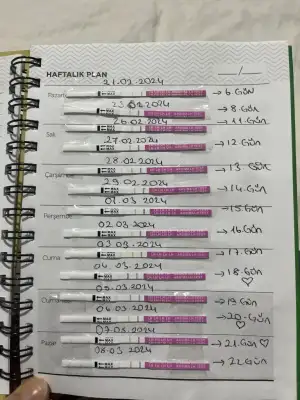 HAFTALIK PLAN
__/__
21.02.2024
Pazartesi → 6 GÜN
23.02.2024
→ 8.Gün
26.02.2024
→ 11.Gün
Salı
27.02.2024
→ 12 Gün
28.02.2024
Çarşamba → 13 Gün
29.02.2024
→ 14.Gün
01.03.2024
→ 15.Gün
Perşembe
02.03.2024
→ 16.Gün
03.03.2024
Cuma → 17.Gün
04.03.2024
→ 18.Gün
♡
05.03.2024
Cumartesi → 19 Gün
06.03.2024
→ 20.Gün
♡
07.03.2024
Pazar → 21.Gün ♡
08.03.2024
→ 22 Gün